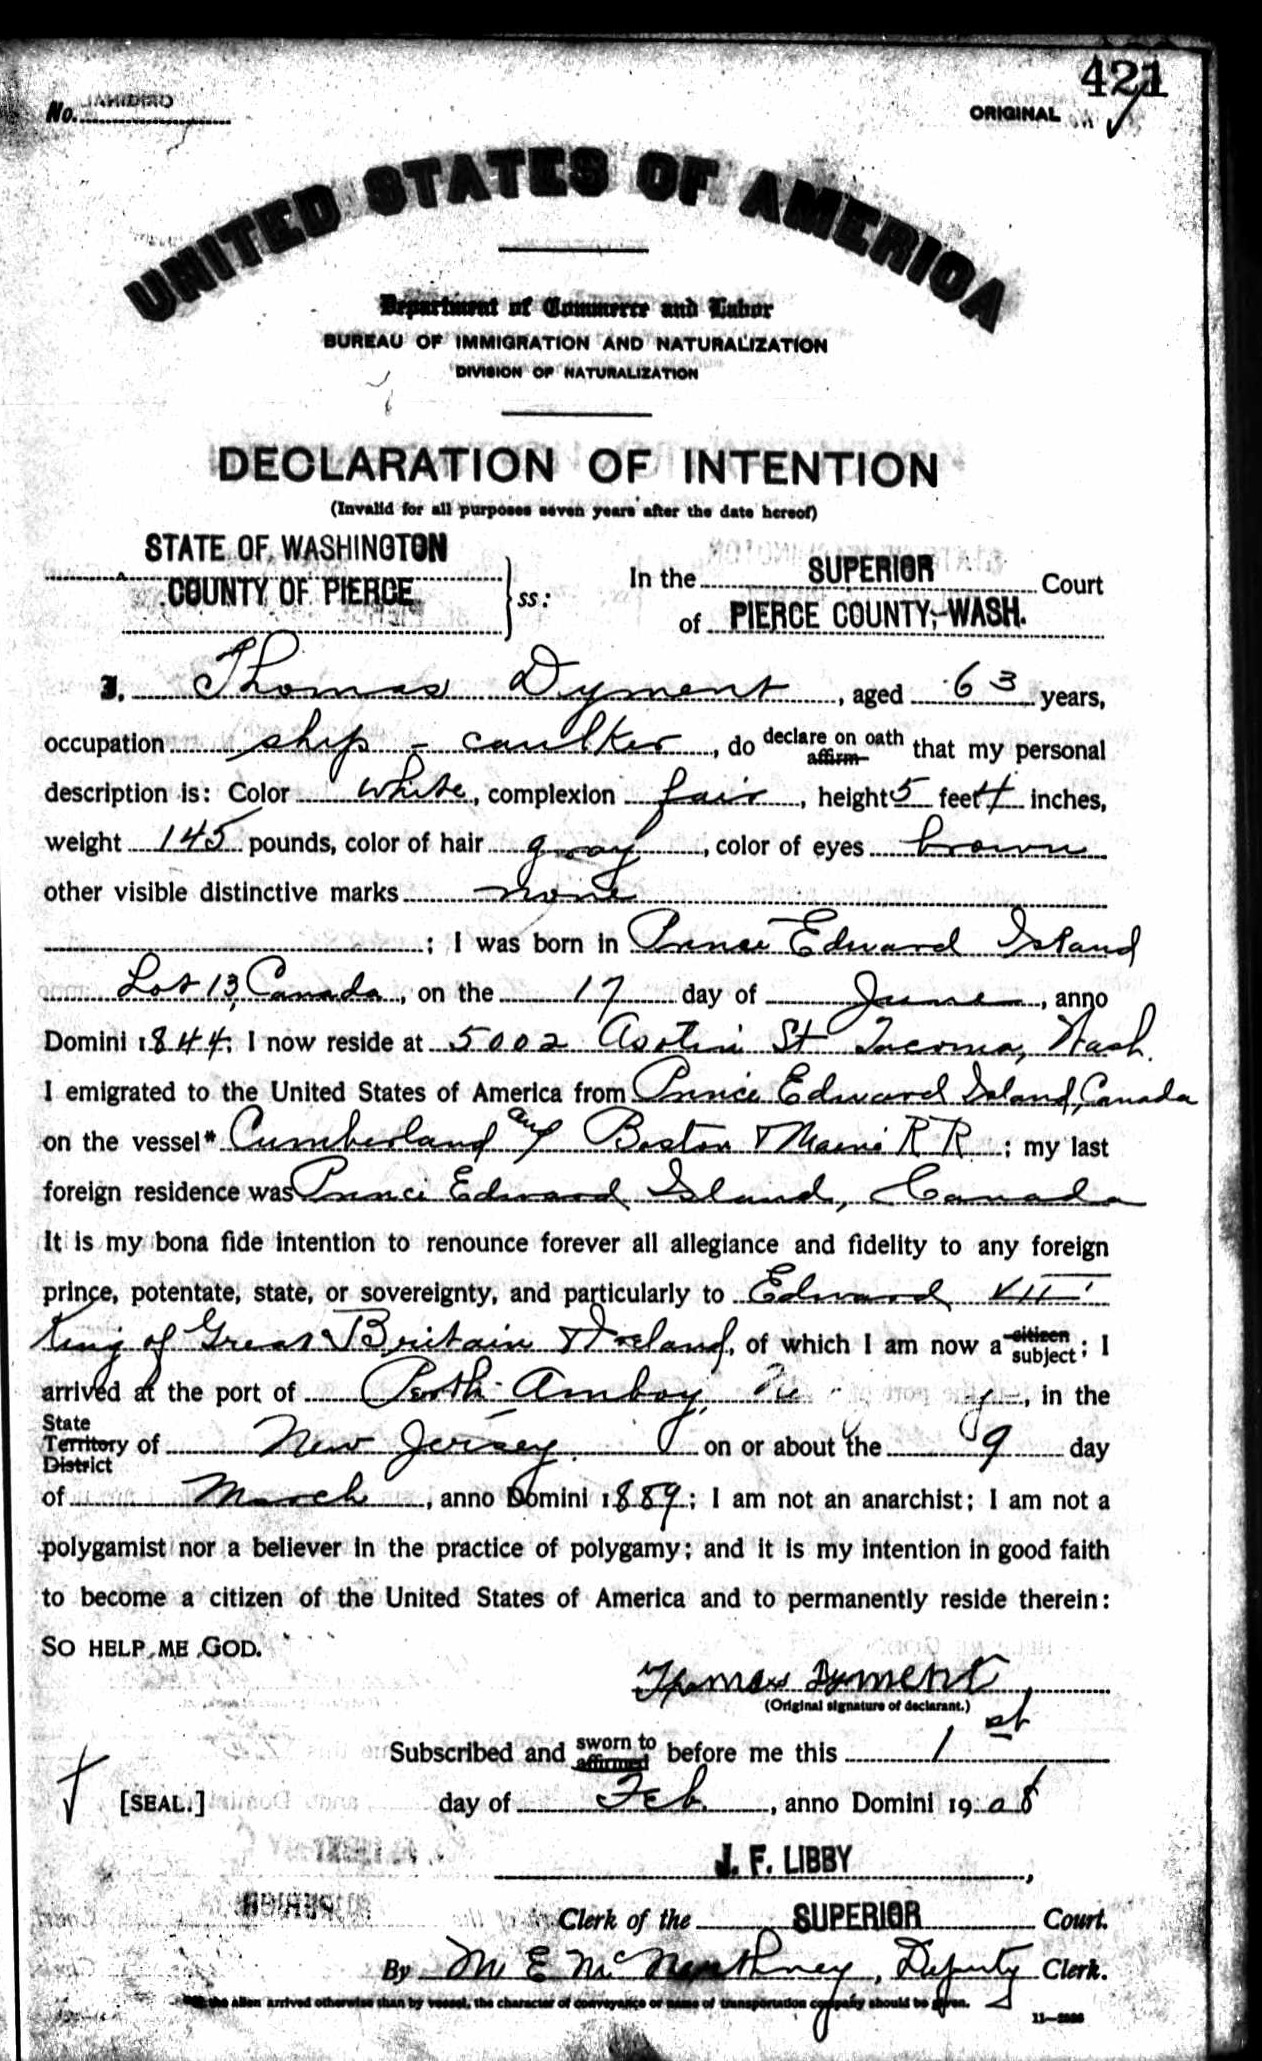 421
No.
ORIGINAL
UNITED STATES OF AMERICA
Department of Commerce and Labor
BUREAU OF IMMIGRATION AND NATURALIZATION
DIVISION OF NATURALIZATION
DECLARATION OF INTENTION
(Invalid for all purposes seven years after the date hereof)
STATE OF WASHINGTON
COUNTY OF PIERCE
ss:
In the SUPERIOR Court
of PIERCE COUNTY, WASH.
I, Thomas Dyment, aged 63 years,
occupation ship-caulker, do declare on oath affirm that my personal
description is: Color white, complexion fair, height 5 feet 4 inches,
weight 145 pounds, color of hair gray, color of eyes brown
other visible distinctive marks none
; I was born in Prince Edward Island
Lot 13, Canada, on the 17 day of June, anno
Domini 1844; I now reside at 5002 Asotin St Tacoma, Wash.
I emigrated to the United States of America from Prince Edward Island, Canada
on the vessel* Cumberland and Boston & Maine R R; my last
foreign residence was Prince Edward Island, Canada
It is my bona fide intention to renounce forever all allegiance and fidelity to any foreign
prince, potentate, state, or sovereignty, and particularly to Edward VII
King of Great Britain & Ireland, of which I am now a citizen subject; I
arrived at the port of Perth Amboy, in the
State Territory District of New Jersey on or about the 9 day
of March, anno Domini 1889; I am not an anarchist; I am not a
polygamist nor a believer in the practice of polygamy; and it is my intention in good faith
to become a citizen of the United States of America and to permanently reside therein:
SO HELP ME GOD.
Thomas Dyment
(Original signature of declarant.)
Subscribed and sworn to affirmed before me this 1st
[SEAL.] day of Feb., anno Domini 1908
J. F. LIBBY,
Clerk of the SUPERIOR Court.
By M E, Deputy Clerk.
*If the alien arrived otherwise than by vessel, the character of conveyance or name of transportation company should be given.